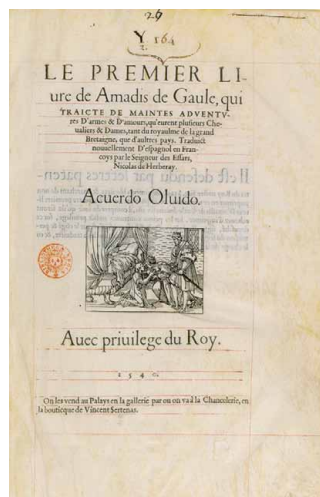 29
Y 564
2.
LE PREMIER LI-
ure de Amadis de Gaule, qui
TRAICTE DE MAINTES ADVENTV-
res D'armes & D'amours, qu'eurent plusieurs Che-
ualiers & Dames, tant du royaulme de la grand
Bretaigne, que d'aultres pays. Traduict
nouuellement D'espagnol en Fran-
coys par le Seigneur des Essars,
Nicolas de Herberay.
Acuerdo Oluido.
Auec priuilege du Roy.
1540.
On les vend au Palays en la gallerie par ou on va à la Chancelerie, en
la bouticque de Vincent Sertenas.